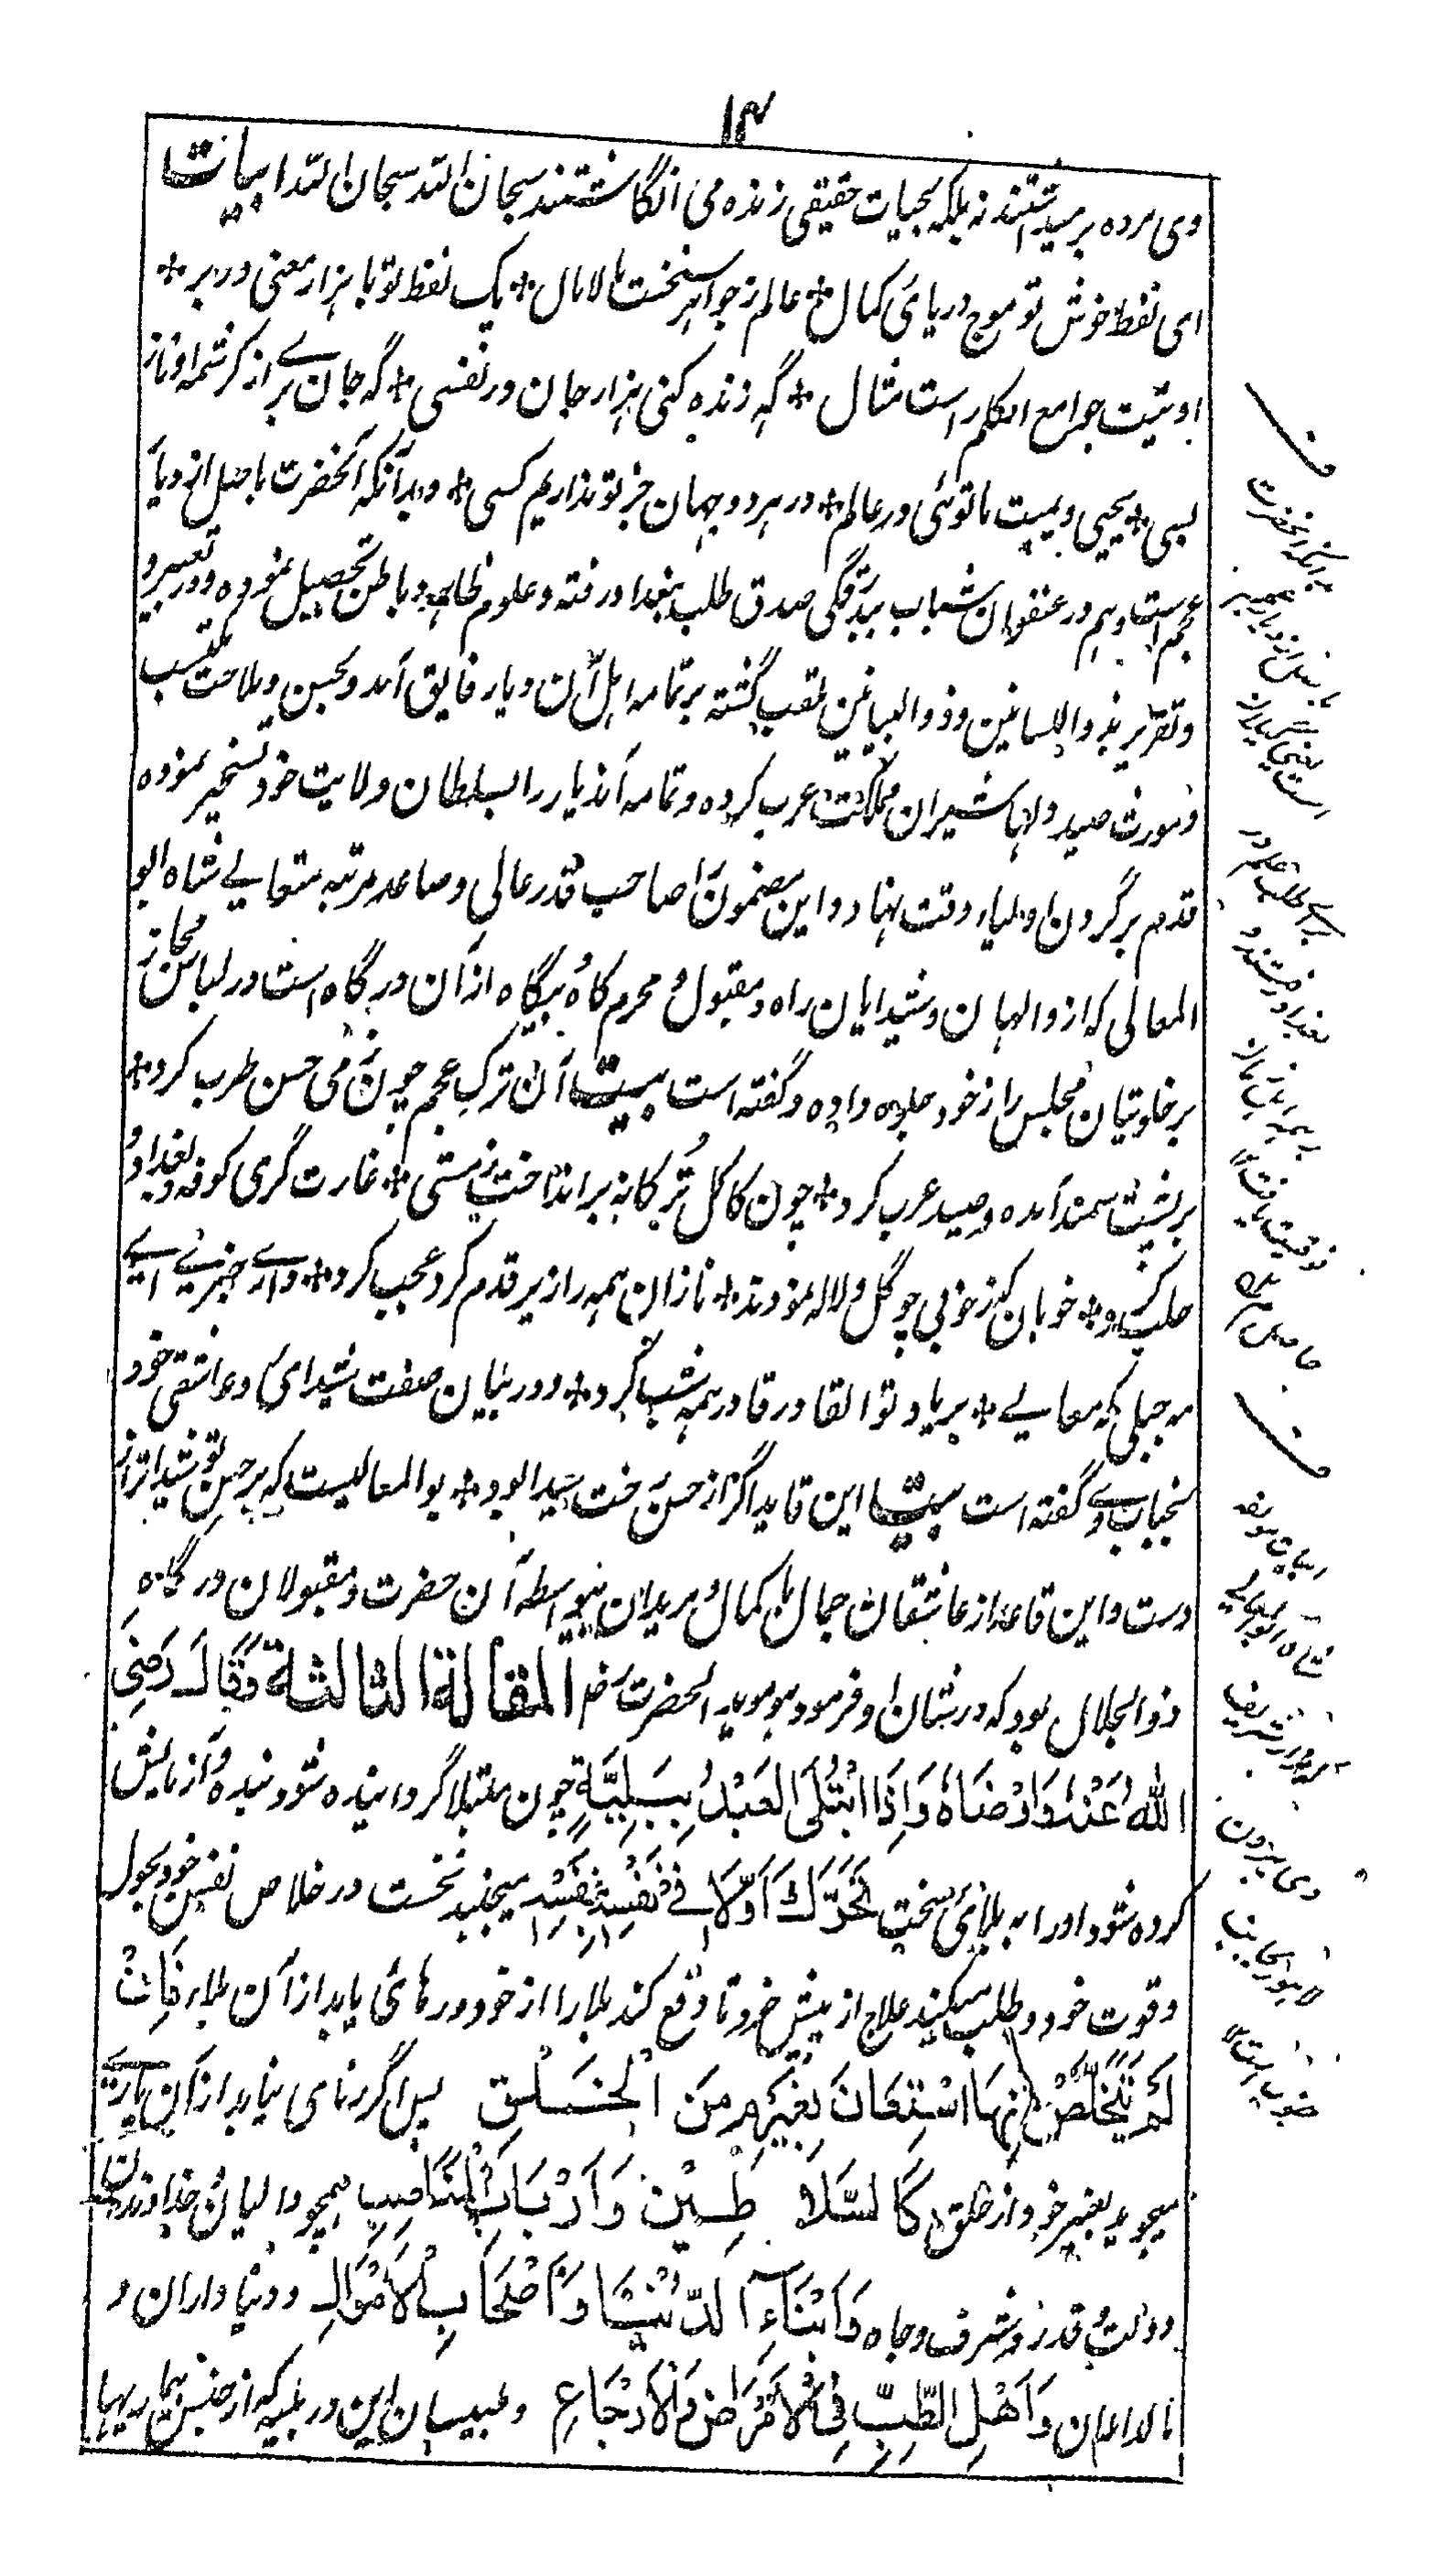 ۱۴
وی مرده پرمید اشتند نه بلکه بحیات حقیقی زنده می انگاشتند سبحان الله سبحان الله ابیات
ای نفط خوش تو موج دریای کمال ✤ عالم ز جواهر سخنت مالامال ✤ یک نفط تو با هزار معنی در بر ✤
اوتیت جوامع الکلم راست مثال ✤ گه زنده کنی هزار جان در نفسی ✤ گه جان بری از کرشمه و ناز
بسی ✤ یحیی و یمیت ما توئی در عالم ✤ در هر دو جهان جز تو نداریم کسی ✤ و بدانکه آنحضرت باصل از دیار
عجم است و هم در عنفوان شباب صدق طلب ببغداد رفته و علوم ظاهر و باطن تحصیل نموده و در تعبیر و
و تقریر بذو اللسانین و ذو البیانین ملقب گشته بر تمامه اهل آن دیار فایق آمد و بحسن و ملاحت
صید دلها شیران مملکت عرب کرده و تمامه آندیار را بسلطان ولایت خود تسخیر نموده
قدم بر گردن اولیاء وقت نهاد و این مضمون را صاحب قدر عالی و صاعد مرتبه متعالی شاه ابو
المعالی که از والهان و شیدایان راه و مقبول و محرم گاه بیگاه از آن درگاه است در لباس مجاز
بر خلوتیان مجلس راز خود جلوه داده و گفته است بیت آن ترک عجم چون ز می حسن طرب کرد ✤
بر پشت سمند آمده و صید عرب کرد ✤ چون کاکل ترکانه بر انداخت ز مستی ✤ غارت گری کوفه و بغداد و
حلب کرد ✤ خوبان که ز خوبی چو گل و لاله نمودند ✤ نازان همه را زیر قدم کرد عجب کرد ✤
مه جیلی که معالی ✤ بر یاد تو القادر قادر همه شب کرد ✤ و در بیان صفت شیدائی و عاشقی خود
بجناب وی گفته است بیت این قاید اگر از حسن رخت شیدا بود ✤ بو المعالیست که بر حسن تو شیداتر از
وست و این قاعد از عاشقان جمال با کمال و مریدان بیواسطه آن حضرت و مقبولان درگاه
ذو الجلال بود که در شان او فرمود المقالة الثالثة وَقَالَ رَضِیَ
اللهُ عَنْهُ وَاَرْضَاهُ وَاِذَا ابْتُلِیَ العَبْدُ بِبَلِیَّةٍ چون مبتلا گردانیده شود بنده و آزمایش
کرده شود او را به بلای سخت تَحَرَّكَ اَوَّلًا فِی نَفْسِهِ بِنَفْسِهِ میجنبد نخست در خلاص نفس خود بحول
و قوت خود و طلب میکند علاج از پیش خود تا دفع کند بلا را از خود و رهائی یابد از آن بلا، فَاِنْ
لَمْ یَتَخَلَّصْ مِنْهَا اسْتِعَانَ بِغَیْرِهِ مِنَ الْخَلْقِ پس اگر رهائی نیابد از آن یاری
میجوید بغیر خود از خلق كَالسَّلَاطِیْنِ وَاَرْبَابِ الْمَنَاصِبِ همچو والیان و خداوندان
دولت و قدر و شرف و جاه وَاَبْنَآءِ الدُّنْیَا وَاَصْحَابِ الْاَمْوَالِ و دنیا داران و
مالداران وَاَهْلِ الطِّبِّ فِی الْاَمْرَاضِ وَالْاَوْجَاعِ و طبیبان این در بلیه که از جنس بیماریها
بدانکه آنحضرت
باصل از دیار عجم
است یعنی گیلان
برای طلب علم در
بغداد رفتند و
بر همه اهل آن
فوقیت یافت
ابیات مولفه
شاه ابوالمعالی
که مزار شریف
وی بیرون
لاهور بجانب
جنوب است